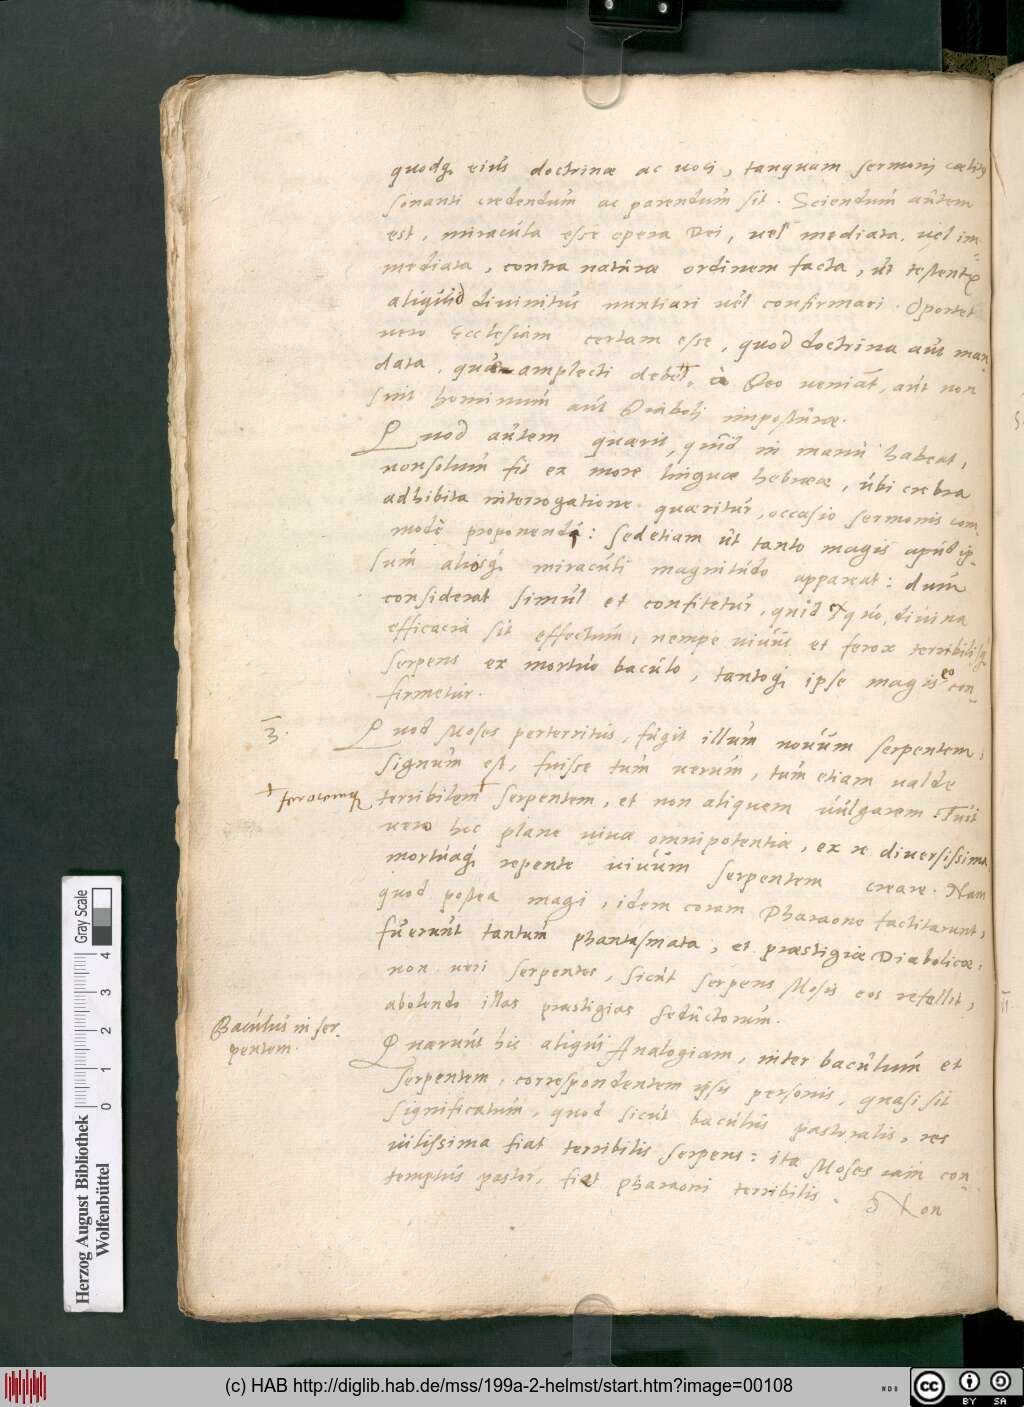 quodq, eius doctrinæ ac voci, tanquam sermoni cælitus
sonanti credendum ac parendum sit. Sciendum autem
est, miracula esse opera Dei, vel mediata, vel im=
mediata, contra naturæ ordinem facta, ut testentur
aliquid divinitus nuntiari vel confirmari. Oportet
vero Ecclesiam certam esse, quod doctrina aut man,
data, quæ amplecti debet, à Deo veniat, aut non
sint hominum aut Diaboli imposturæ.
Quod autem quærit, quid in manu habeat,
non solum fit ex more linguæ hebreæ, ubi crebra
adhibita interrogatione quæritur, occasio sermonis com,
modè proponendi: sed etiam ut tanto magis apud ip=
sum aliosq, miraculi magnitudo appareat: dum
considerat simul et confitetur, quid et quo, divina
efficacia sit effectum, nempe vivus et ferox terribilisq,
serpens ex mortuo baculo, tantoq, ipse magis eo con=
firmetur.
3.
Quod Moses perterritus, fugit illum novum serpentem,
signum est, fuisse tum verum, tum etiam valde
ferocemq
terribilem serpentem, et non aliquem vulgarem. Fuit
vero hec plane vivæ omnipotentiæ, ex re diversissima
mortuaq, repente vivum serpentem creare. Nam
quod postea magi, idem coram Pharaone factitarunt,
fuerunt tantum phantasmata, et præstigiæ Diabolicæ,
non veri serpentes, sicut serpens Mosis eos refellit,
abolendo illas præstigias seductorum.
Baculus in ser,
pentem.
Quærunt hic aliqui Analogiam, inter baculum et
serpentem, correspondentem ipsis personis, quasi sit
significatum, quod sicut baculus pastoralis, res
vilissima fiat terribilis serpens: ita Moses iam con,
temptus pastor, fiat pharaoni terribilis.
Non
Herzog August Bibliothek
Wolfenbüttel
0 1 2 3 4
Gray Scale
(c) HAB http://diglib.hab.de/mss/199a-2-helmst/start.htm?image=00108
cc BY SA